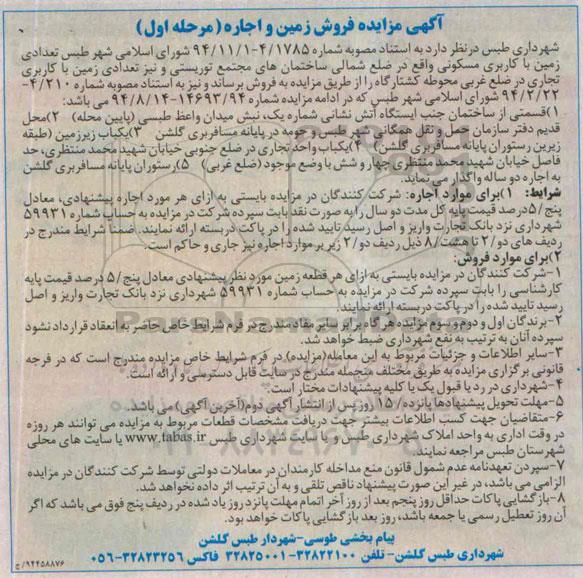 آگهی مزایده فروش زمین و اجاره (مرحله اول)
شهرداری طبس درنظر دارد به استناد مصوبه شماره ۴/۱۷۸۵-۹۴/۱۱/۱ شورای اسلامی شهر طبس تعدادی
زمین با کاربری مسکونی واقع در ضلع شمالی ساختمان های مجتمع توریستی و نیز تعدادی زمین با کاربری
تجاری در ضلع غربی محوطه کشتارگاه را از طریق مزایده به فروش برساند و نیز به استناد مصوبه شماره ۴/۲۱۰-
۹۴/۲/۲۲ شورای اسلامی شهر طبس که در ادامه مزایده شماره ۱۴۶۹۳/۹۴-۹۴/۸/۱۴ می باشد:
۱)قسمتی از ساختمان جنب ایستگاه آتش نشانی شماره یک، نبش میدان واعظ طبسی (پایین محله) ۲)محل
قدیم دفتر سازمان حمل و نقل همگانی شهر طبس و حومه در پایانه مسافربری گلشن ۳)یکباب زیرزمین (طبقه
زیرین رستوران پایانه مسافربری گلشن) ۴)یکباب واحد تجاری در ضلع جنوبی خیابان شهید محمد منتظری، حد
فاصل خیابان شهید محمد منتظری چهار و شش با وضع موجود (ضلع غربی) ۵)رستوران پایانه مسافربری گلشن
به اجاره دو ساله واگذار می نماید.
شرایط: ۱)برای موارد اجاره: شرکت کنندگان در مزایده بایستی به ازای هر مورد اجاره پیشنهادی، معادل
پنج/۵درصد قیمت پایه کل مدت دو سال را به صورت نقد بابت سپرده شرکت در مزایده به حساب شماره ۵۹۹۳۱
شهرداری نزد بانک تجارت واریز و اصل رسید تایید شده را در پاکت دربسته ارائه نمایند. ضمنا شرایط مندرج در
ردیف های دو/۲ تا هشت/۸ ذیل ردیف دو/۲ زیر بر موارد اجاره نیز جاری و حاکم است.
۲)برای موارد فروش:
۱-شرکت کنندگان در مزایده بایستی به ازای هر قطعه زمین مورد نظر پیشنهادی معادل پنج/۵ درصد قیمت پایه
کارشناسی را بابت سپرده شرکت در مزایده به حساب شماره ۵۹۹۳۱ شهرداری نزد بانک تجارت واریز و اصل
رسید تایید شده را در پاکت دربسته ارائه نمایند.
۲-برندگان اول و دوم و سوم مزایده هر گاه برابر سایر مفاد مندرج در فرم شرایط خاص حاضر به انعقاد قرارداد نشود
سپرده آنان به ترتیب به نفع شهرداری ضبط خواهد شد.
۳-سایر اطلاعات و جزئیات مربوط به این معامله(مزایده) در فرم شرایط خاص مزایده مندرج است که در فرجه
قانونی برگزاری مزایده به طریق مختلف منجمله مندرج در سایت قابل دسترسی و ارائه است.
۴-شهرداری در رد یا قبول یک یا کلیه پیشنهادات مختار است.
۵-مهلت تحویل پیشنهادها پانزده/۱۵ روز پس از انتشار آگهی دوم(آخرین آگهی) می باشد.
۶-متقاضیان جهت کسب اطلاعات بیشتر جهت دریافت مشخصات قطعات مربوط به مزایده می توانند هر روزه
در وقت اداری به واحد املاک شهرداری طبس و یا سایت شهرداری طبس www.tabas.ir یا سایت های محلی
شهرستان طبس مراجعه نمایند.
۷-سپردن تعهدنامه عدم شمول قانون منع مداخله کارمندان در معاملات دولتی توسط شرکت کنندگان در مزایده
الزامی می باشد، در غیر این صورت پیشنهاد ناقص تلقی و به آن ترتیب اثر داده نخواهد شد.
۸-بازگشایی پاکات حداقل روز پنجم بعد از روز آخر اتمام مهلت پانزده روز یاد شده در ردیف پنج فوق می باشد که اگر
آن روز تعطیل رسمی یا جمعه باشد، روز بعد بازگشایی پاکات خواهد بود.
پیام بخشی طوسی-شهردار طبس گلشن
شهرداری طبس گلشن- تلفن ۳۲۸۲۲۱۰۰-۳۲۸۲۵۰۰۱ فاکس ۳۲۸۲۳۲۵۶-۰۵۶
۹۴۴۵۸۸۷۶/ج